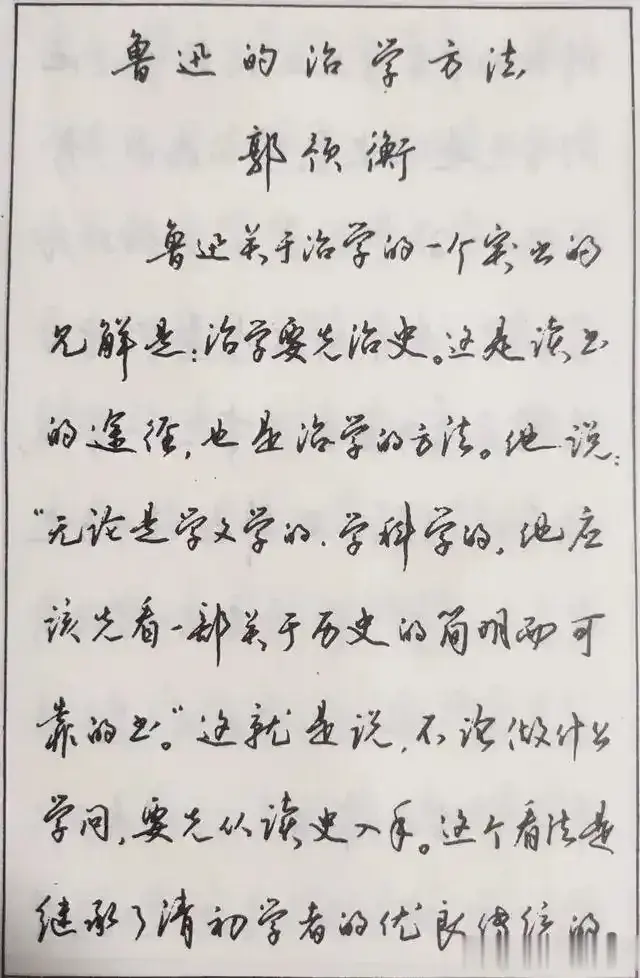 鲁迅的治学方法
郭预衡
鲁迅关于治学的一个突出的
见解是：治学要先治史。这是读书
的途径，也是治学的方法。他说：
“无论是学文学的，学科学的，他应
该先看一部关于历史的简明而可
靠的书。”这就是说，不论做什么
学问，要先从读史入手。这个看法是
继承了清初学者的优良传统的